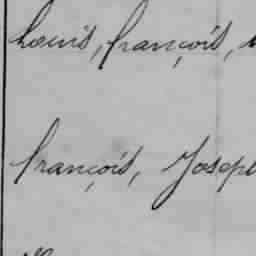 Louis, françois,
françois, Joseph